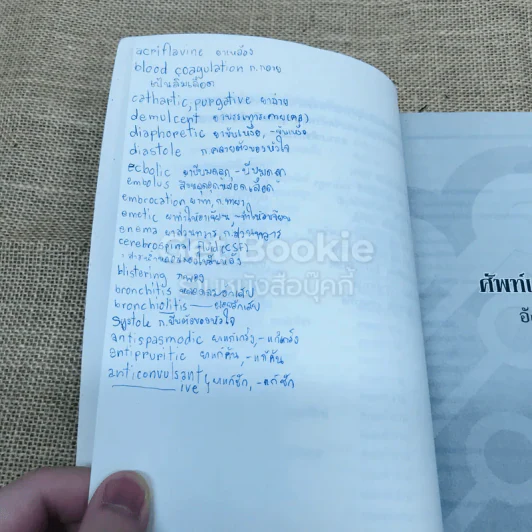 acriflavine ยาเหลือง
blood coagulation ก.กลาย
เป็นลิ่มเลือด
cathartic, purgative ยาถ่าย
demulcent ยาบรรเทาระคาย
diaphoretic ยาขับเหงื่อ, -ขับเหงื่อ
diastole ก.คลายตัวของหัวใจ
ecbolic ยาบีบมดลูก, -บีบมดลูก
embolus สิ่งอุดหลอดเลือด
embrocation ยาทา, ก.ทายา
emetic ยาทำให้อาเจียน, -ทำให้อาเจียน
enema ยาสวนทวาร, ก.สวนทวาร
cerebrospinal fluid (CSF)
blistering
bronchitis หลอดลมอักเสบ
bronchiolitis
systole ก.บีบตัวของหัวใจ
antispasmodic ยาแก้เกร็ง, -แก้เกร็ง
antipruritic ยาแก้คัน, -แก้คัน
anticonvulsant, ยาแก้ชัก, -แก้ชัก
ive
Bookie
ร้านหนังสือบุ๊คกี้
ศัพท์